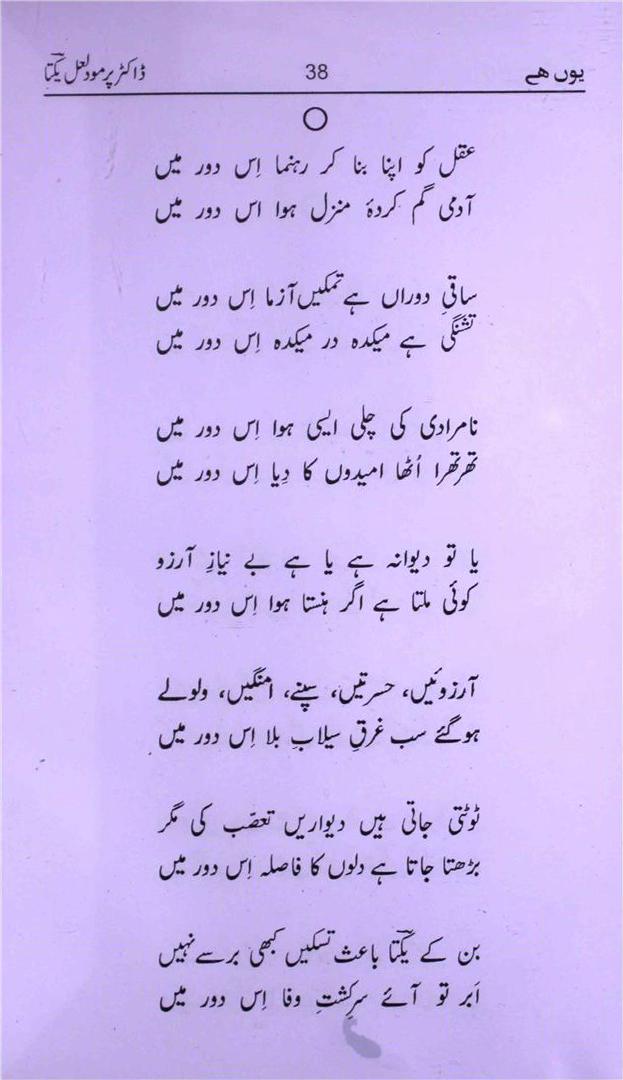 یوں ھے 38 ڈاکٹر پرمود لعل یکتا
عقل کو اپنا بنا کر رہنما اِس دور میں
آدمی گم کردۂ منزل ہوا اس دور میں
ساقیِ دوراں ہے تمکیں آزما اِس دور میں
تشنگی ہے میکدہ در میکدہ اِس دور میں
نامرادی کی چلی ایسی ہوا اِس دور میں
تھرتھرا اُٹھا امیدوں کا دِیا اِس دور میں
یا تو دیوانہ ہے یا ہے بے نیازِ آرزو
کوئی ملتا ہے اگر ہنستا ہوا اِس دور میں
آرزوئیں، حسرتیں، سپنے، امنگیں، ولولے
ہوگئے سب غرقِ سیلابِ بلا اِس دور میں
ٹوٹتی جاتی ہیں دیواریں تعصّب کی مگر
بڑھتا جاتا ہے دلوں کا فاصلہ اِس دور میں
بن کے یکتاؔ باعث تسکیں کبھی برسے نہیں
اَبر تو آئے سرِکشتِ وفا اِس دور میں